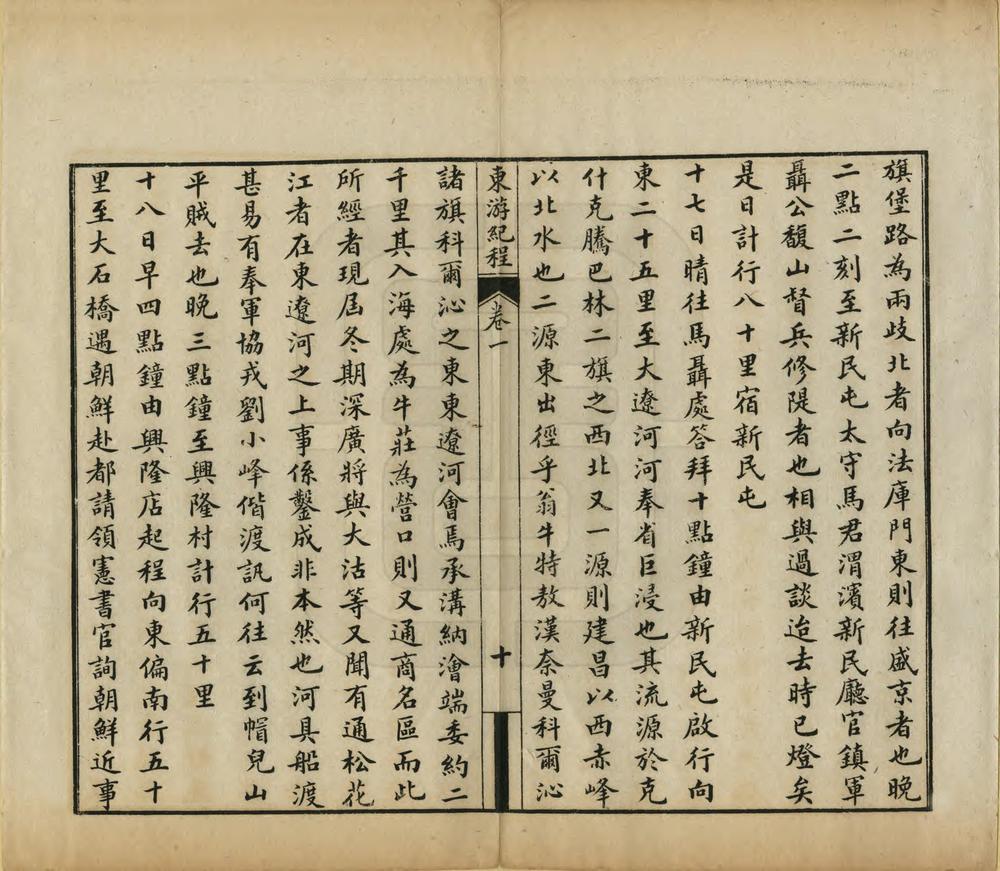 旗堡路為兩歧北者向法庫門東則往盛京者也晚
二點二刻至新民屯太守馬君渭濱新民廳官鎮軍
聶公馥山督兵修隄者也相與過談迨去時已燈矣
是日計行八十里宿新民屯
十七日晴往馬聶處答拜十點鐘由新民屯啟行向
東二十五里至大遼河河奉省巨浸也其流源於克
什克騰巴林二旗之西北又一源則建昌以西赤峰
以北水也二源東出徑乎翁牛特敖漢奈曼科爾沁
東游紀程
卷一
十
諸旗科爾沁之東東遼河會焉承溝納澮端委約二
千里其入海處為牛莊為營口則又通商名區而此
所經者現屆冬期深廣將與大沽等又聞有通松花
江者在東遼河之上事係鑿成非本然也河具船渡
甚易有奉軍協戎劉小峰偕渡訊何往云到帽兒山
平賊去也晚三點鐘至興隆村計行五十里
十八日早四點鐘由興隆店起程向東偏南行五十
里至大石橋遇朝鮮赴都請領憲書官詢朝鮮近事